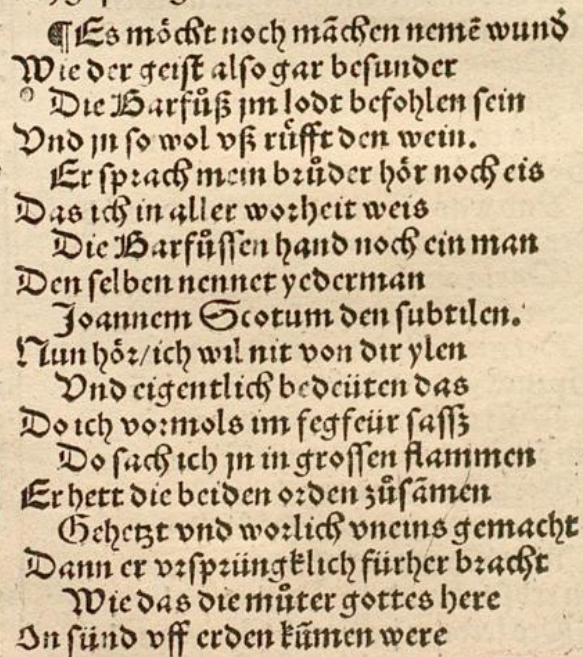 ¶Es möcht noch mãchen nemẽ wund̉
Wie der geist also gar besunder
Die Barfůß jm lodt befohlen sein
Vnd jn so wol vß rüfft den wein.
Er sprach mein brůder hör noch eis
Das ich in aller worheit weis
Die Barfůssen hand noch ein man
Den selben nennet yederman
Joannem Scotum den subtilen.
Nun hör/ich wil nit von dir ylen
Vnd eigentlich bedeüten das
Do ich vormols im fegfeür sassz
Do sach ich jn in grossen flammen
Er hett die beiden orden zůsãmen
Gehetzt vnd worlich vneins gemacht
Dann er vrsprüngklich fürher bracht
Wie das die můter gottes here
In sünd vff erden kũmen were